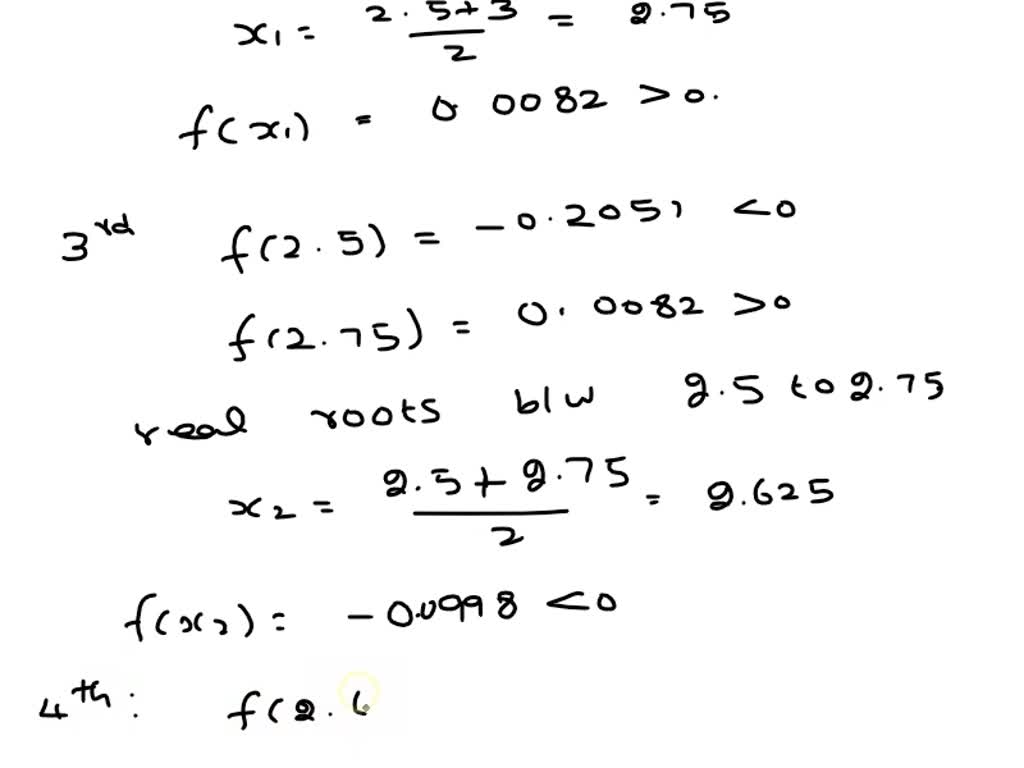 x₁ = (2.5+3)/2 = 2.75
f(x₁) = 0.0082 >0.
3rd f(2.5) = -0.2051 <0
f(2.75) = 0.0082 >0
real roots b/w 2.5 to 2.75
x₂ = (2.5+2.75)/2 = 2.625
f(x₂) = -0.0998 <0
4th: f(2.6